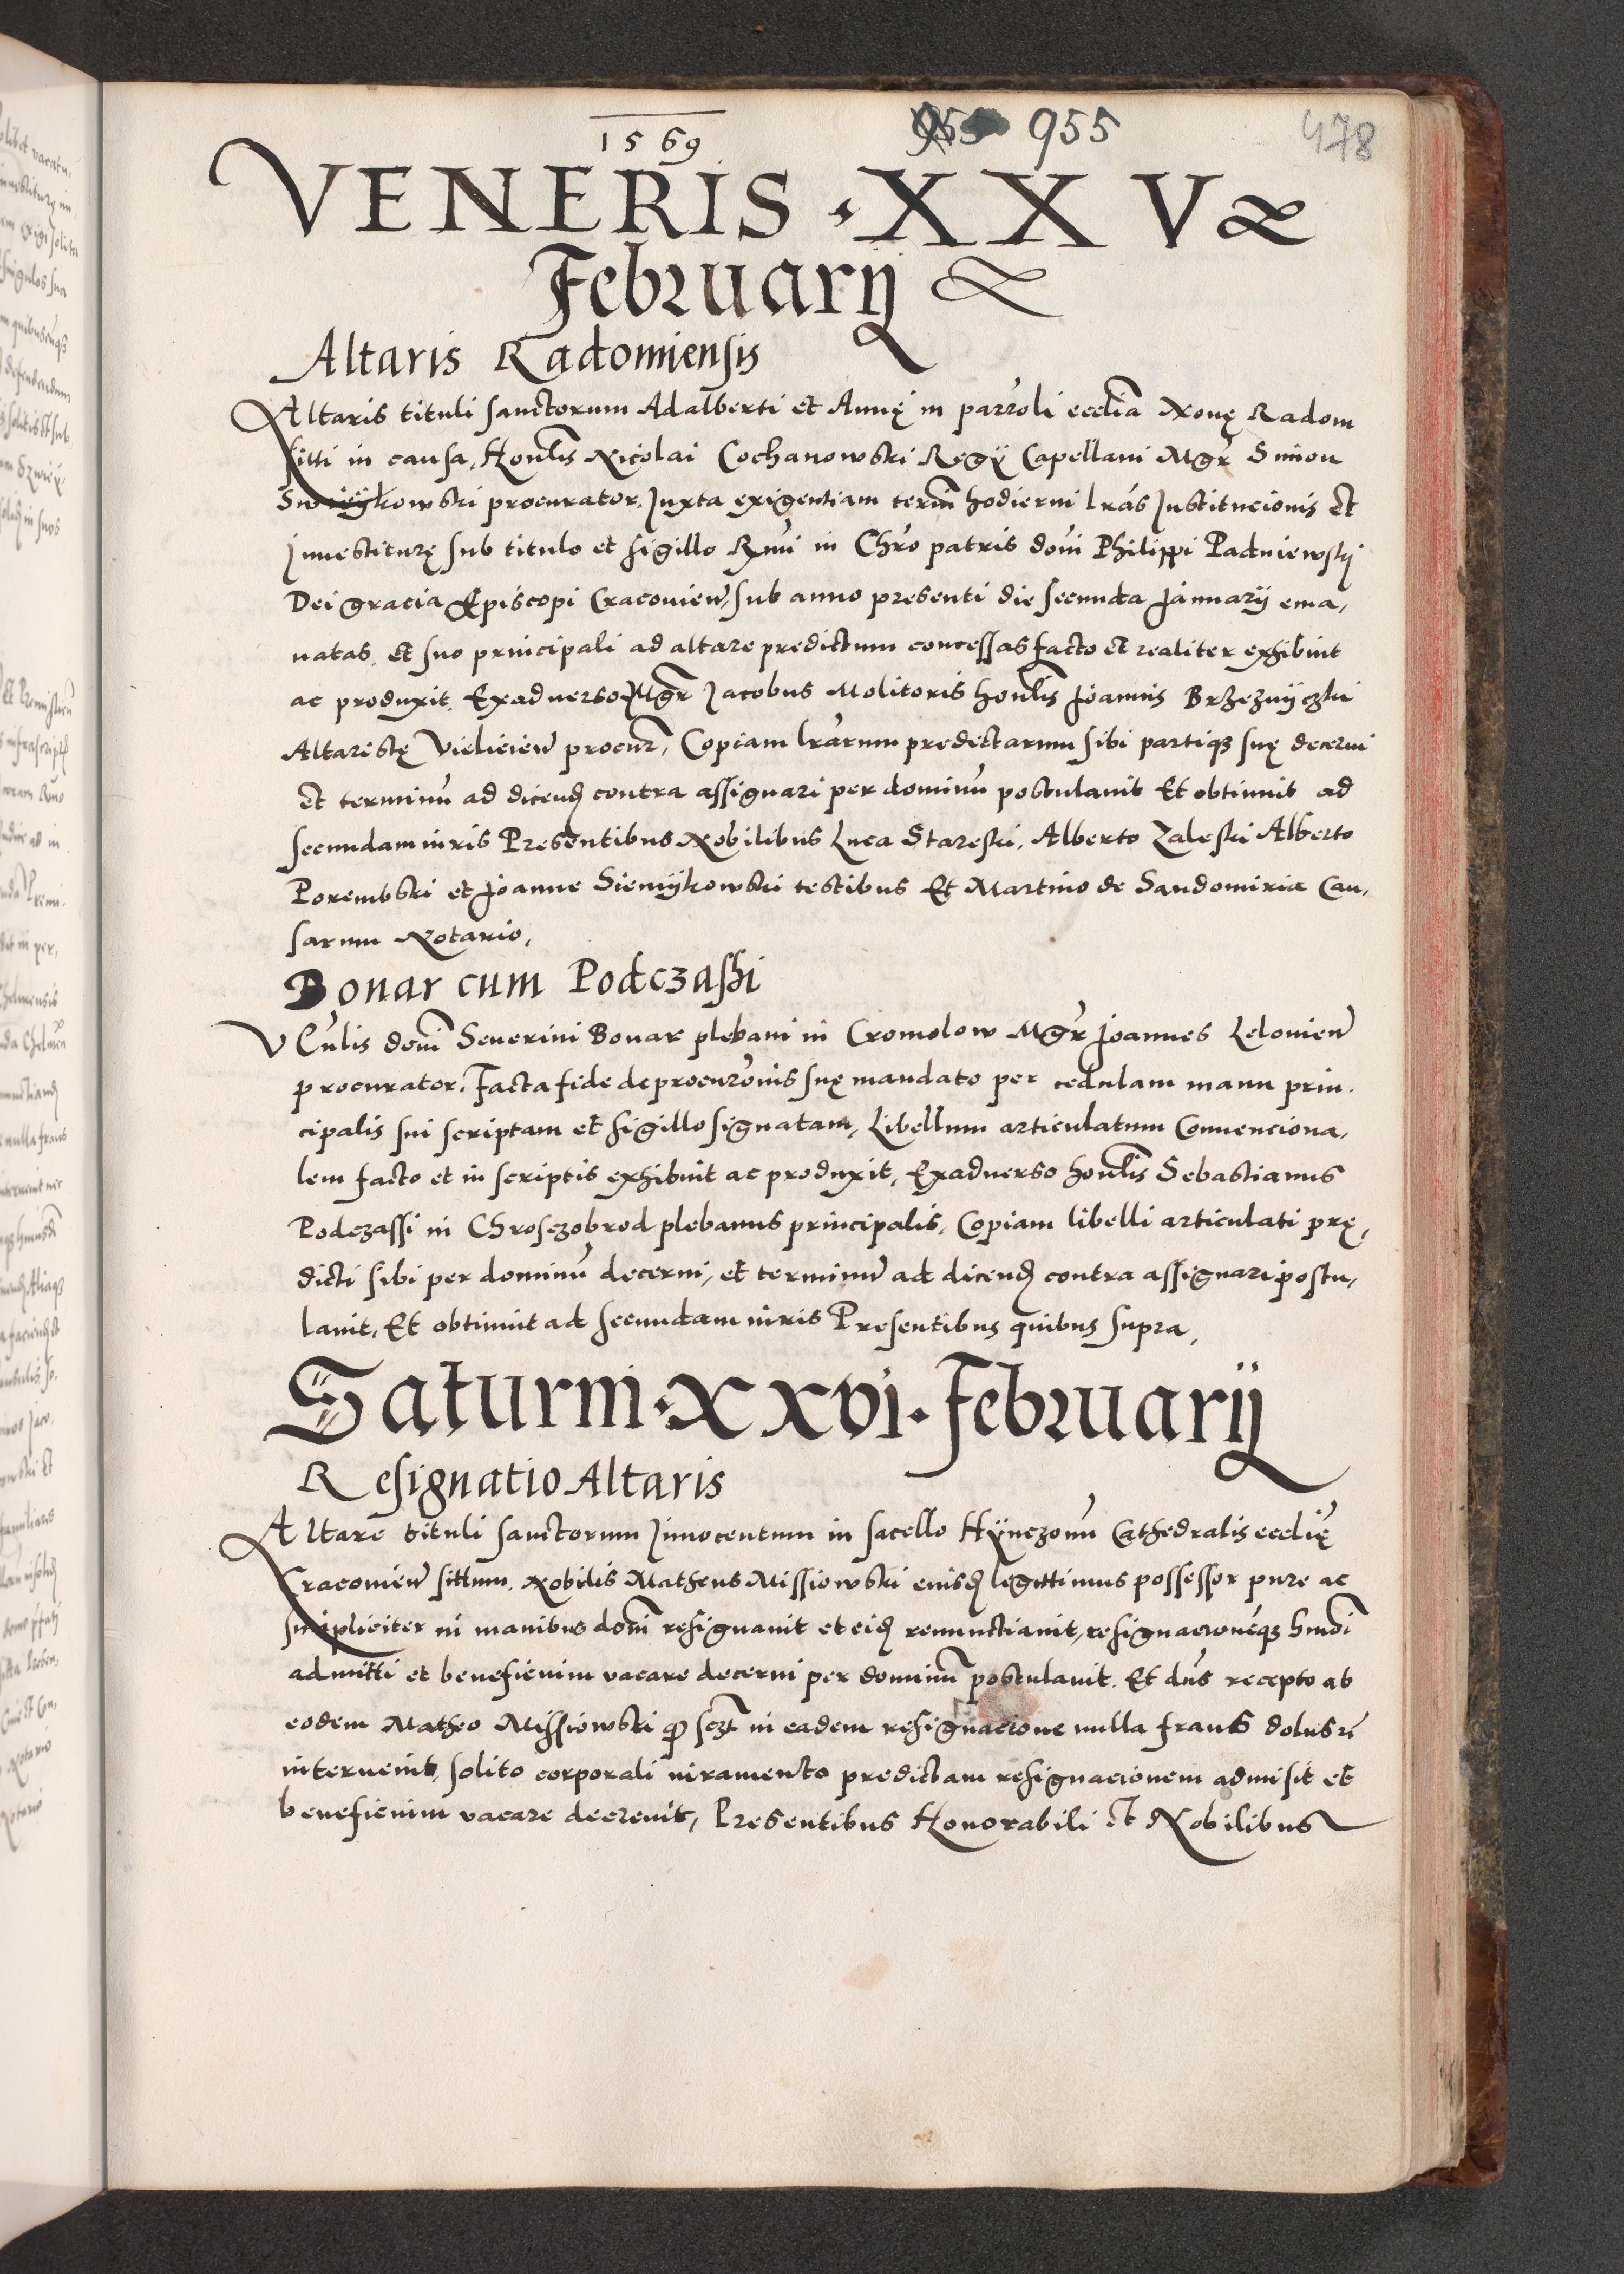 1569
955 955
478
VENERIS · XXV
Februarij
Altaris Radomiensis
Altaris tituli sanctorum Adalberti et Annę in parroli ecclia Nouę Radom
sitti in causa, Honlis Nicolai Cochanowski Regij Capellani Mgr Simon
procurator. Juxta exigentiam termi hodierni lras Institucionis et
Inuestiturę sub titulo et sigillo Rmi in Chro patris domi Philippi Padniewskj
Dei gracia Episcopi Cracovien, sub anno presenti die secunda Januarij ema,
natas. et suo principali ad altare predictum concessas facto et realiter exhibuit
ac produxit. Exaduerso Mgr Jacobus Molitoris honlis Joannis Brzeznyczki
Altaristę Vielicien procur, Copiam lrarum predictarum sibi partiq3 suę decerni
et terminu ad dicend contra assignari per dominu postulauit Et obtinuit ad
secundam iuris Presentibus Nobilibus Luca Stareski. Alberto Zaleski Alberto
Porembski et Joanne Sienijkowski testibus Et Martino de Sandomiria Cau,
sarum Notario,
Bonar cum Podczaski
Ulis domi Seuerini Bonar plebani in Cromolow Mgr Joannes Lelouien
procurator. Facta fide de procuronis suę mandato per cedulam manu prin.
cipalis sui scriptam et sigillo signatam, Libellum articulatum Conuenciona,
lem facto et in scriptis exhibuit ac produxit, Exaduerso honlis Sebastianus
Podczassi in Chrosczobrod plebanus principalis. Copiam libelli articulati prę,
dicti sibi per dominu decerni, et terminu ad dicend contra assignari postu,
lauit, Et obtinuit ad secundam iuris Presentibus quibus supra,
Saturni · xxvi · februarij
Resignatio Altaris
Altare tituli sanctorum Innocentum in sacello Hijnczonu Cathedralis ecclię
Cracouien sittum. Nobilis Matheus Missiowski eiusd legittimus possessor pure ac
simpliciter in manibus domi resignauit et eid renunctiauit, resignacioneq3 hmoi
admitti et beneficium vacare decerni per dominu postulauit. Et dns recepto ab
eodem Matheo Missiowski in eadem resignacione nulla fraus dolus
interuenit, solito corporali iuramento predictam resignacionem admisit et
beneficium vacare decreuit, Presentibus Honorabili et Nobilibus